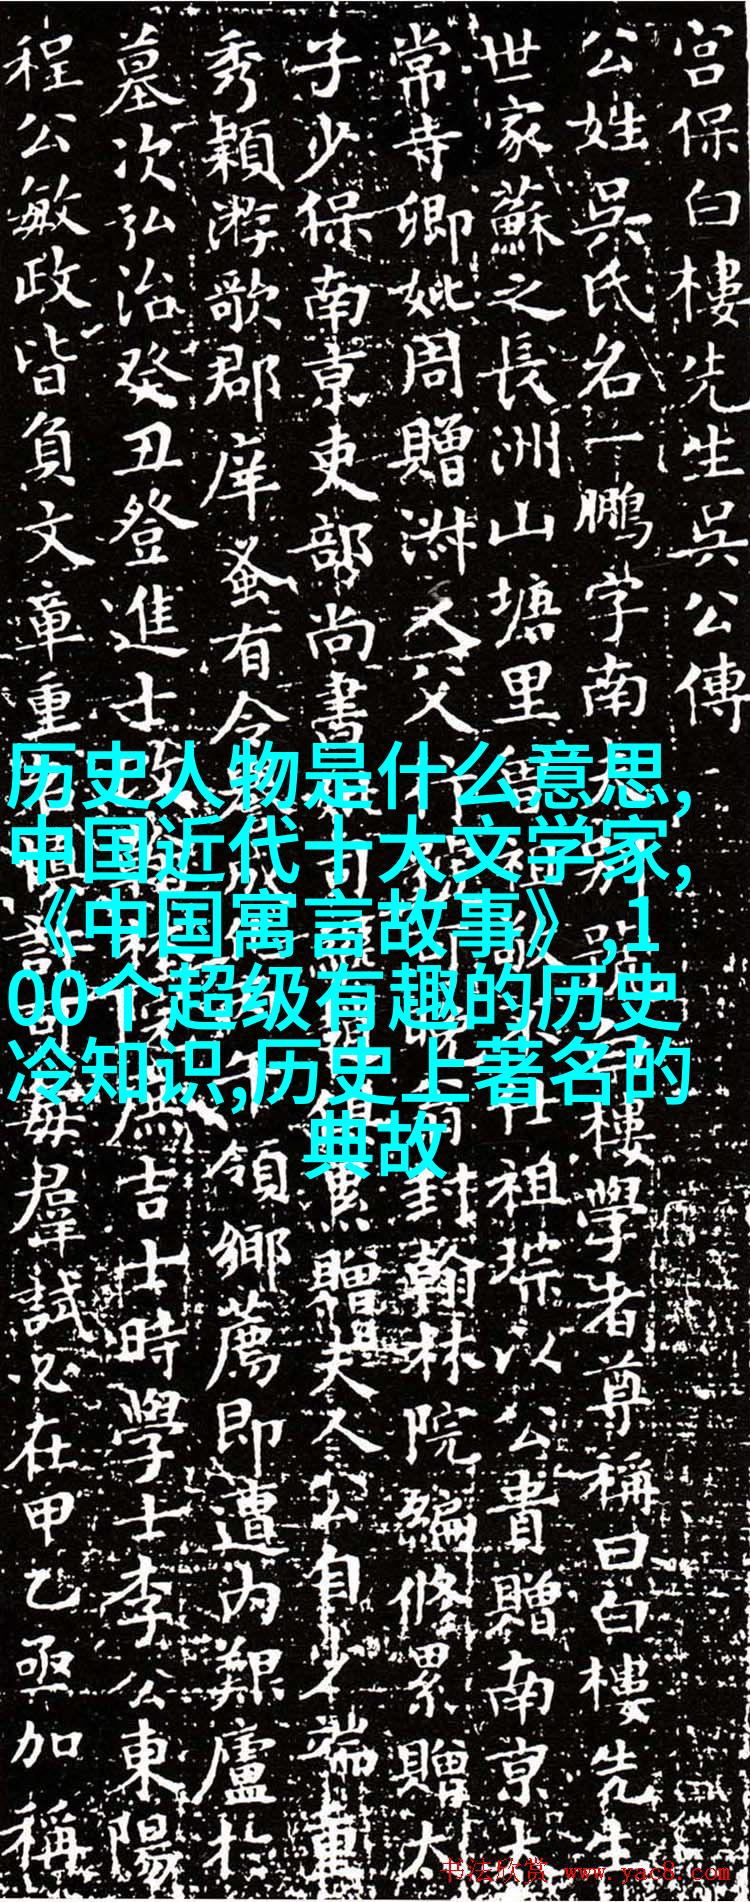 宮保白樓先生吳公傳
公姓吳氏名一鵬字南 樓學者尊稱曰白樓先生
世家蘇之長洲山塘里曾祖 仕祖琮以公貴贈南京太
常寺卿妣周贈淑人父 封翰林院編修累贈太
子少保南京吏部尚書 贈夫人公自少端重
秀穎游歌郡庠蚤有令 領鄉薦即遭內艱廬於
墓次弘治癸丑登進士 為吉士時學士李公東陽
程公敏政皆負文章重 每羣試必在甲乙亟加稱
历史人物是什么意思,
中国近代十大文学家,
《中国寓言故事》,1
00个超级有趣的历史
冷知识,历史上著名的
典故
书法欣赏 www.yac8.com